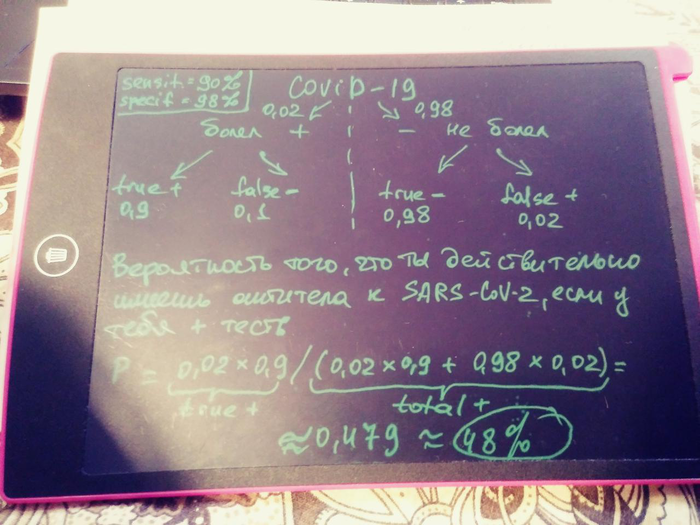 sensit. = 90%
specif = 98%
Covid-19
0,02 0,98
болел + - не болел
true + false - true - false +
0,9 0,1 0,98 0,02
Вероятность того, что ты действительно
имеешь антитела к SARS-CoV-2, если у
тебя + тест
P = 0,02 × 0,9 / (0,02 × 0,9 + 0,98 × 0,02) =
true + total +
≈ 0,479 ≈ 48%